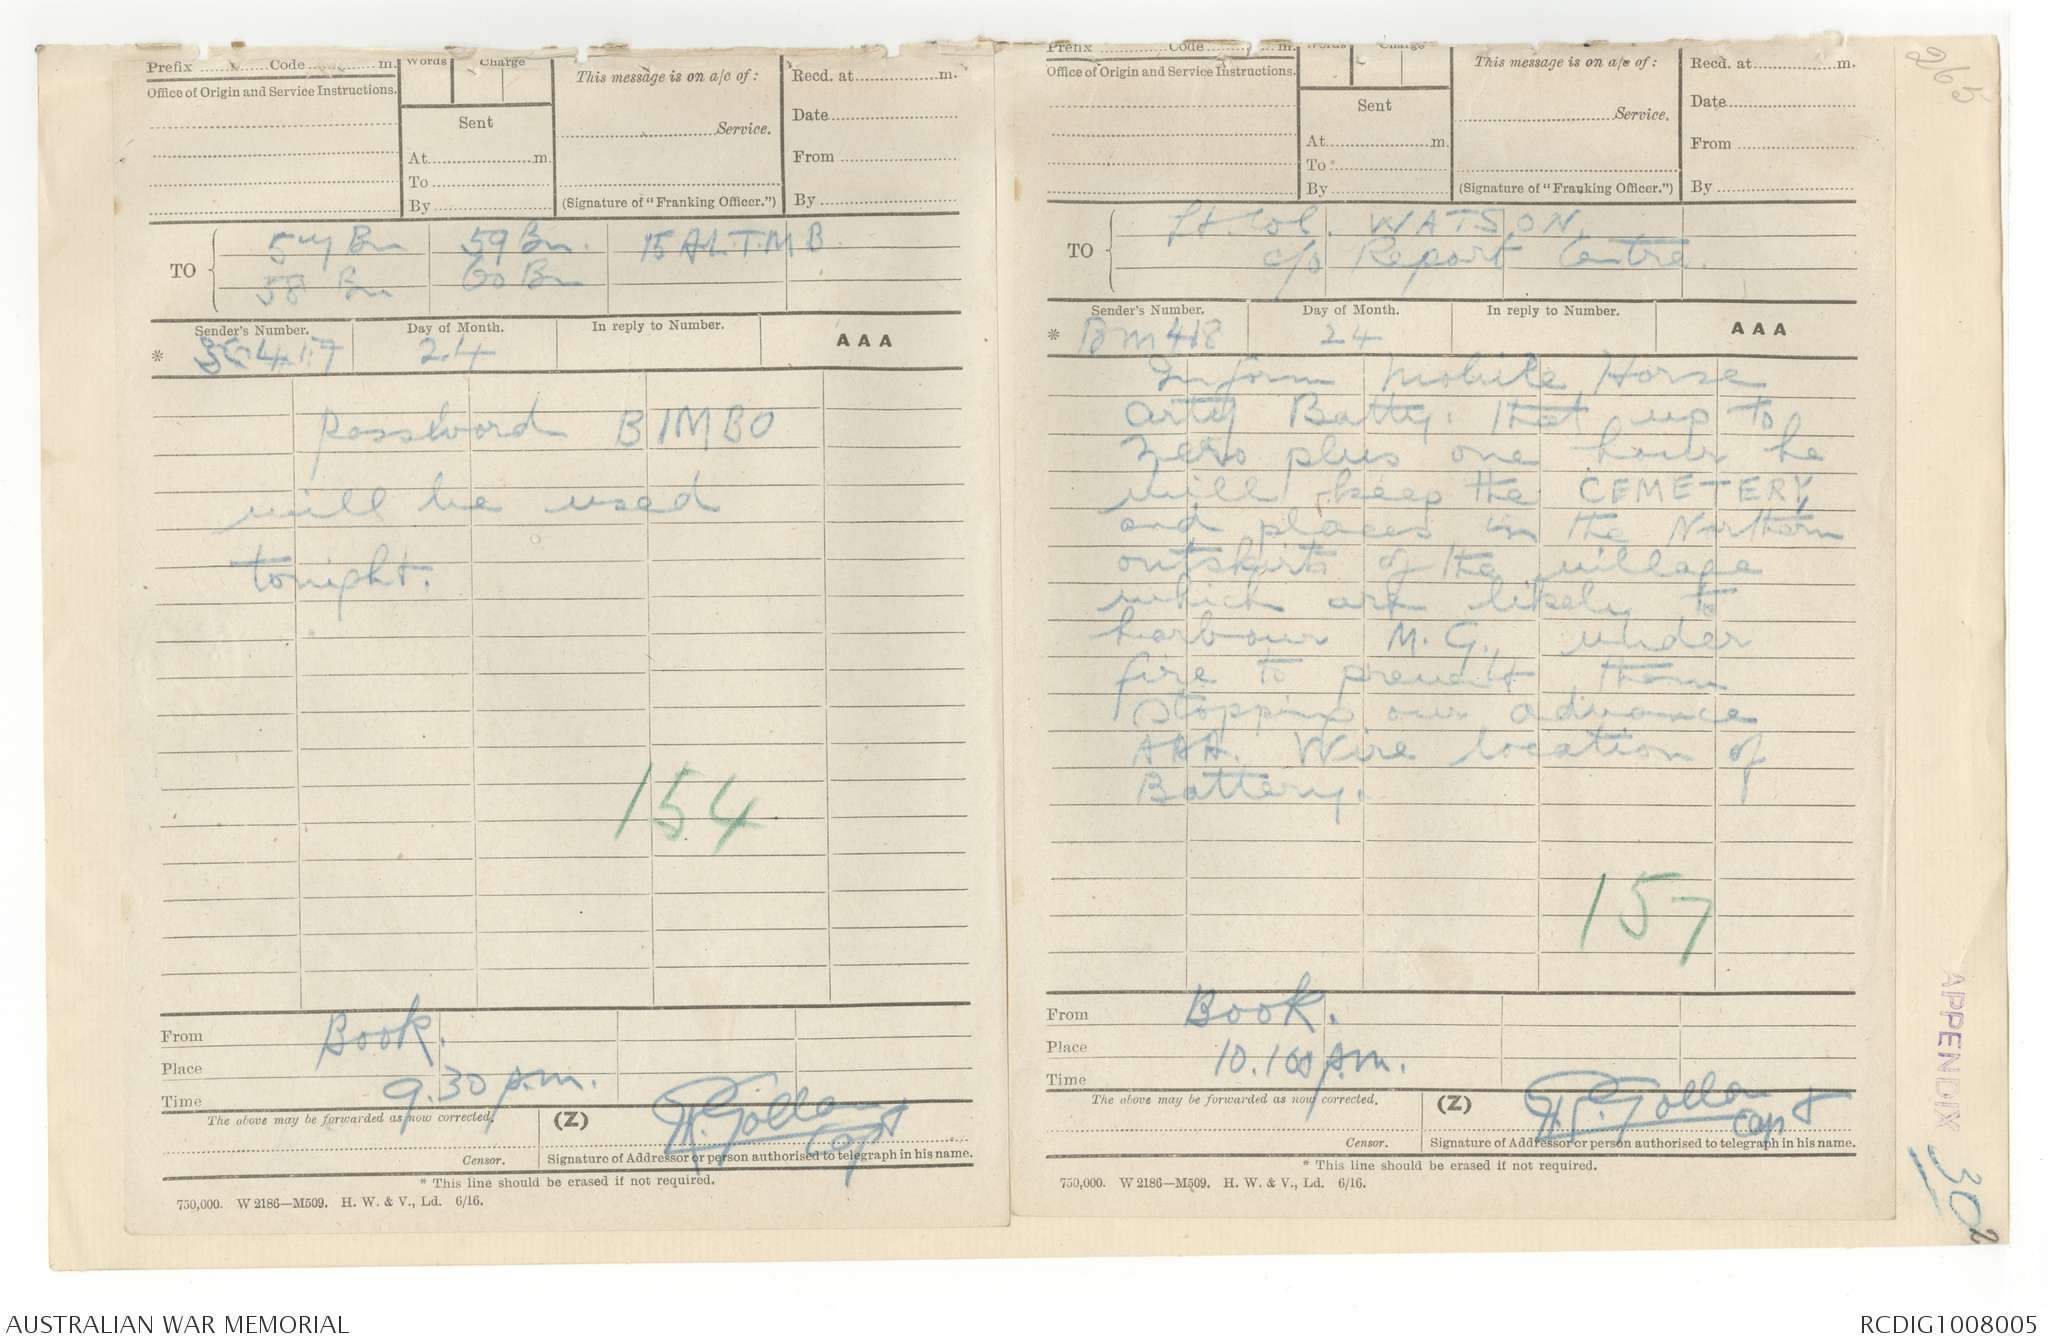 Prefix ............ Code ............ m.
Words
Charge
This message is on a/c of :
Recd. at ............ m.
Office of Origin and Service Instructions.
Sent
Date
Service.
At ............ m.
From
To
By
(Signature of "Franking Officer.")
By
TO
57 Bn 59 Bn. 15 A.L.T.M B.
58 Bn 60 Bn
Sender's Number.
Day of Month.
In reply to Number.
AAA
* 417
24
Password BIMBO
will be used
tonight.
154
From
Book.
Place
Time
9.30 p.m.
The above may be forwarded as now corrected.
(Z)
H.C. Gollan
Capt
Censor.
Signature of Addressor or person authorised to telegraph in his name.
* This line should be erased if not required.
750,000. W 2186—M509. H. W. & V., Ld. 6/16.
Prefix ............ Code ............ m.
Words
Charge
This message is on a/c of :
Recd. at ............ m.
Office of Origin and Service Instructions.
Sent
Date
Service.
At ............ m.
From
To
By
(Signature of "Franking Officer.")
By
265
TO
Lt. Col. WATSON,
c/o Report Centre.
Sender's Number.
Day of Month.
In reply to Number.
AAA
* BM 418
24
Inform Mobile Horse
arty Batty. that up to
zero plus one hour he
will keep the CEMETERY
and places in the Northern
outskirts of the village
which are likely to
harbour M.G., under
fire to prevent them
stopping our advance
AAA. Wire location of
Battery.
157
From
Book.
Place
Time
10.10 p.m.
The above may be forwarded as now corrected.
(Z)
H.C. Gollan
Capt
Censor.
Signature of Addressor or person authorised to telegraph in his name.
* This line should be erased if not required.
750,000. W 2186—M509. H. W. & V., Ld. 6/16.
APPENDIX 302
AUSTRALIAN WAR MEMORIAL
RCDIG1008005